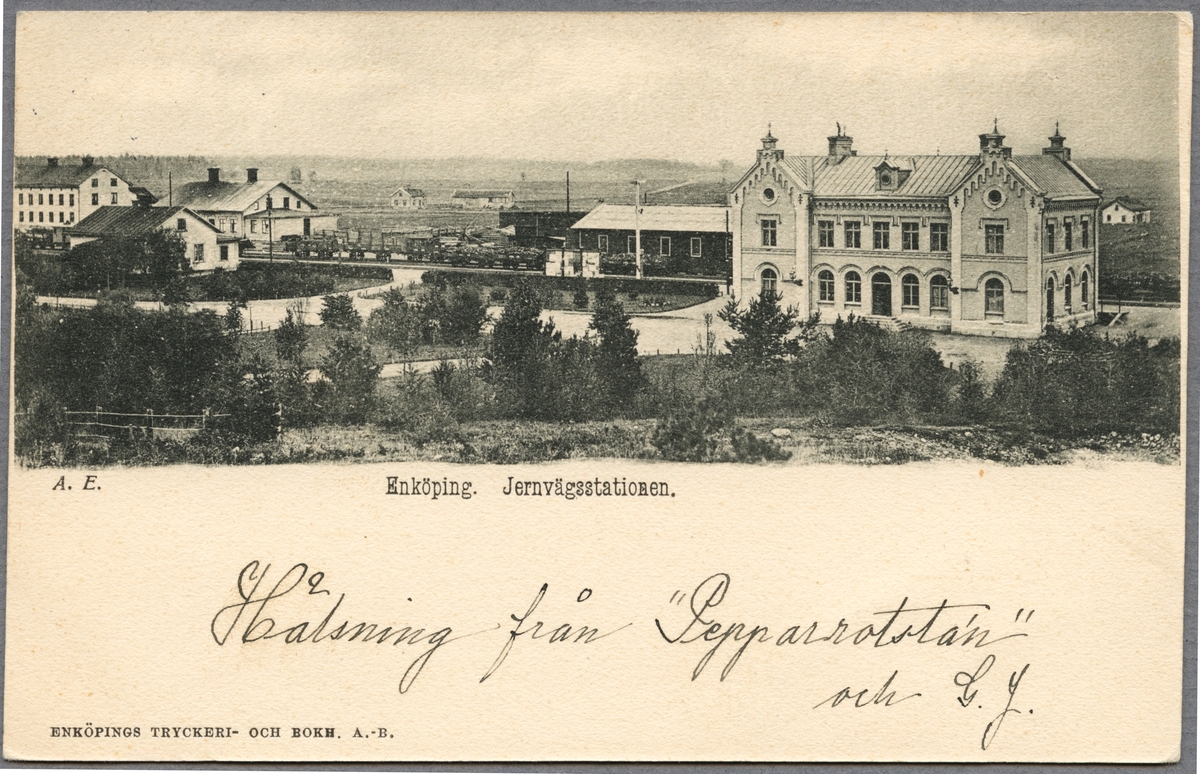 A. E.
Enköping. Jernvägsstationen.
Hälsning från "Pepparrotsta'n"
och G. J.
ENKÖPINGS TRYCKERI- OCH BOKH. A.-B.